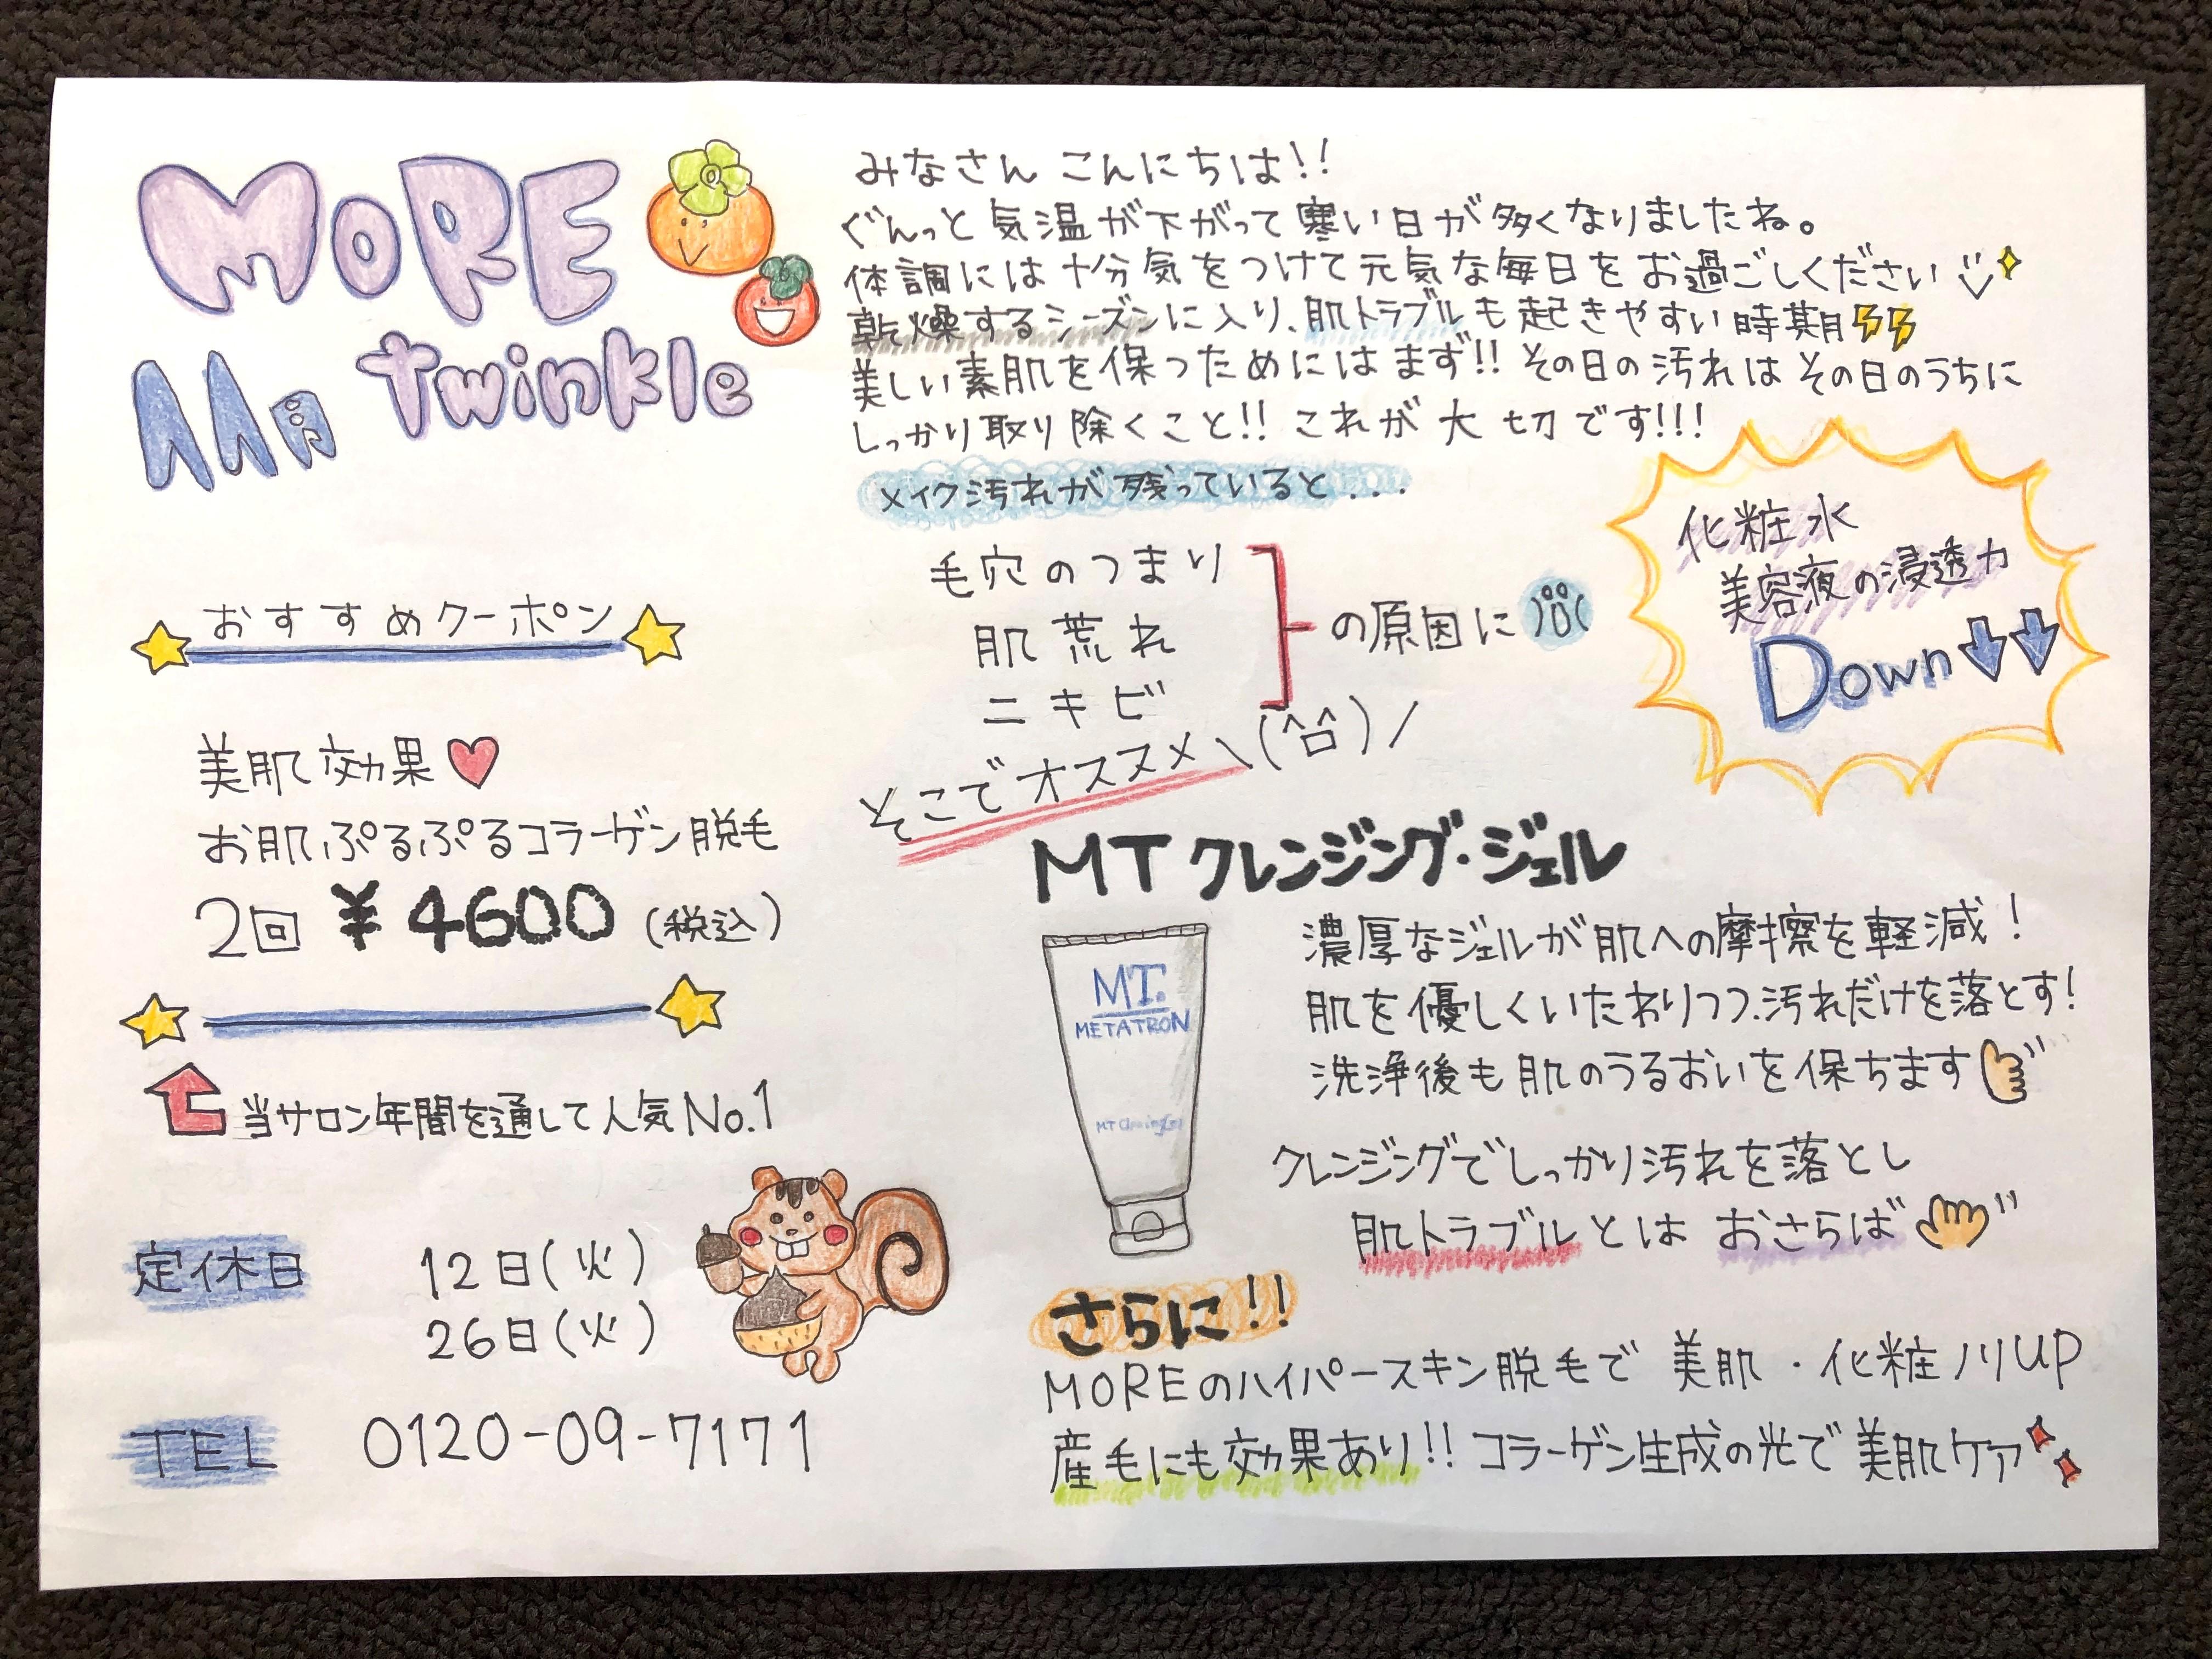 MoRE
11月 twinkle
おすすめクーポン
美肌効果
お肌ぷるぷるコラーゲン脱毛
2回 ¥4600 (税込)
当サロン年間を通して人気No.1
定休日 12日(火)
26日(火)
TEL 0120-09-7171
みなさん こんにちは!!
ぐんっと気温が下がって寒い日が多くなりましたね。
体調には十分気をつけて元気な毎日をお過ごしください
乾燥するシーズンに入り、肌トラブルも起きやすい時期
美しい素肌を保つためにはまず!! その日の汚れはその日のうちに
しっかり取り除くこと!! これが大切です!!!
メイク汚れが残っていると...
毛穴のつまり
肌荒れ
ニキビ
の原因に
化粧水
美容液の浸透力
Down↓↓
そこでオススメ\(^口^)/
MTクレンジング・ジェル
MT.
METATRON
濃厚なジェルが肌への摩擦を軽減!
肌を優しくいたわりつつ、汚れだけを落とす!
洗浄後も肌のうるおいを保ちます
クレンジングでしっかり汚れを落とし
肌トラブルとは おさらば
さらに!!
MOREのハイパースキン脱毛で 美肌・化粧ノリUP
産毛にも効果あり!! コラーゲン生成の光で美肌ケア